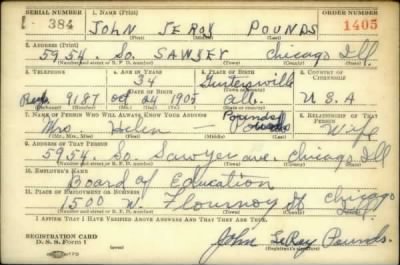 SERIAL NUMBER 1. NAME (Print) ORDER NUMBER
384 JOHN LE ROY POUNDS 1405
(First) (Middle) (Last)
2. ADDRESS (Print)
5954 So. SAWYER Chicago Ill.
(Number and street or R. F. D. number) (Town) (County) (State)
3. TELEPHONE 4. AGE IN YEARS 5. PLACE OF BIRTH 6. COUNTRY OF CITIZENSHIP
34 Guntersville
DATE OF BIRTH (Town or county)
9187 Oct 24 1905 Ala. U.S.A
(Exchange) (Number) (Mo.) (Day) (Yr.) (State or country)
7. NAME OF PERSON WHO WILL ALWAYS KNOW YOUR ADDRESS 8. RELATIONSHIP OF THAT PERSON
Pounds
Mrs Helen — Pounds Wife
(Mr., Mrs., Miss) (First) (Middle) (Last)
9. ADDRESS OF THAT PERSON
5954. So Sawyer ave. Chicago Ill
(Number and street or R. F. D. number) (Town) (County) (State)
10. EMPLOYER'S NAME
Board of Education
11. PLACE OF EMPLOYMENT OR BUSINESS
1500 W. Flournoy St Chicago
(Number and street or R. F. D. number) (Town) (County) (State)
I AFFIRM THAT I HAVE VERIFIED ABOVE ANSWERS AND THAT THEY ARE TRUE.
REGISTRATION CARD
D. S. S. Form 1 John LeRoy Pounds.